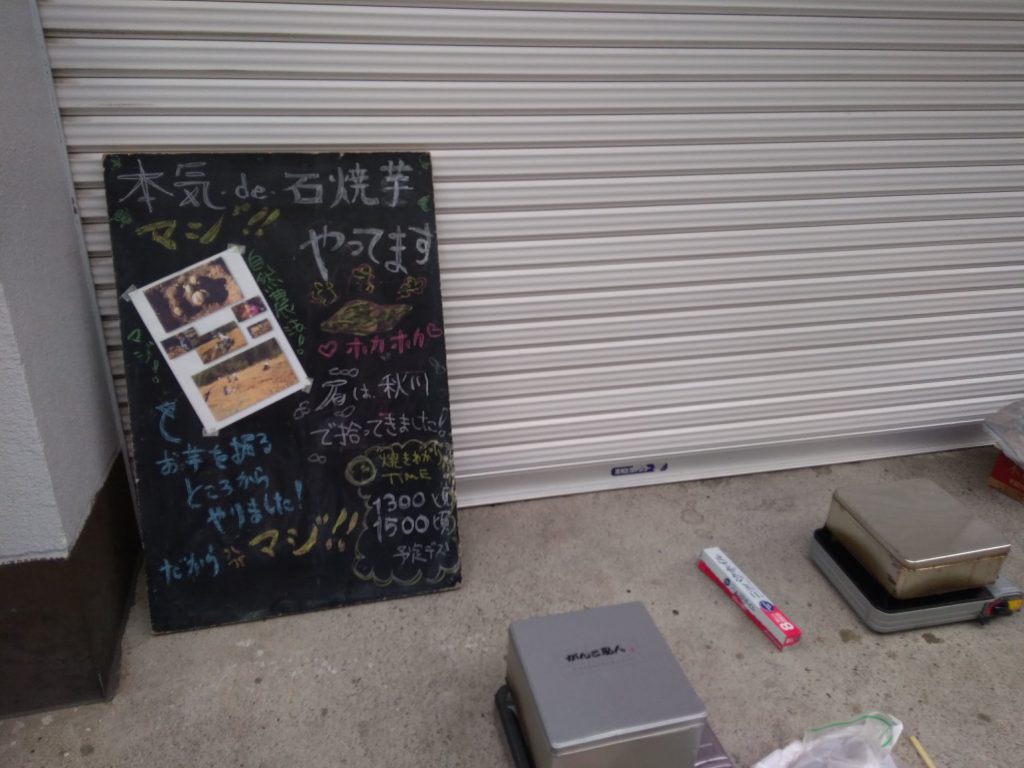 本気de石焼芋
マジ!!
やってます
自然農法!!
マジ!!
ホカホカ
は、秋川
で拾ってきました!
お芋を掘る
ところから
やりました!
だから
マジ!!
TIME
1300頃
1500頃
予定デス!
がんこ職人